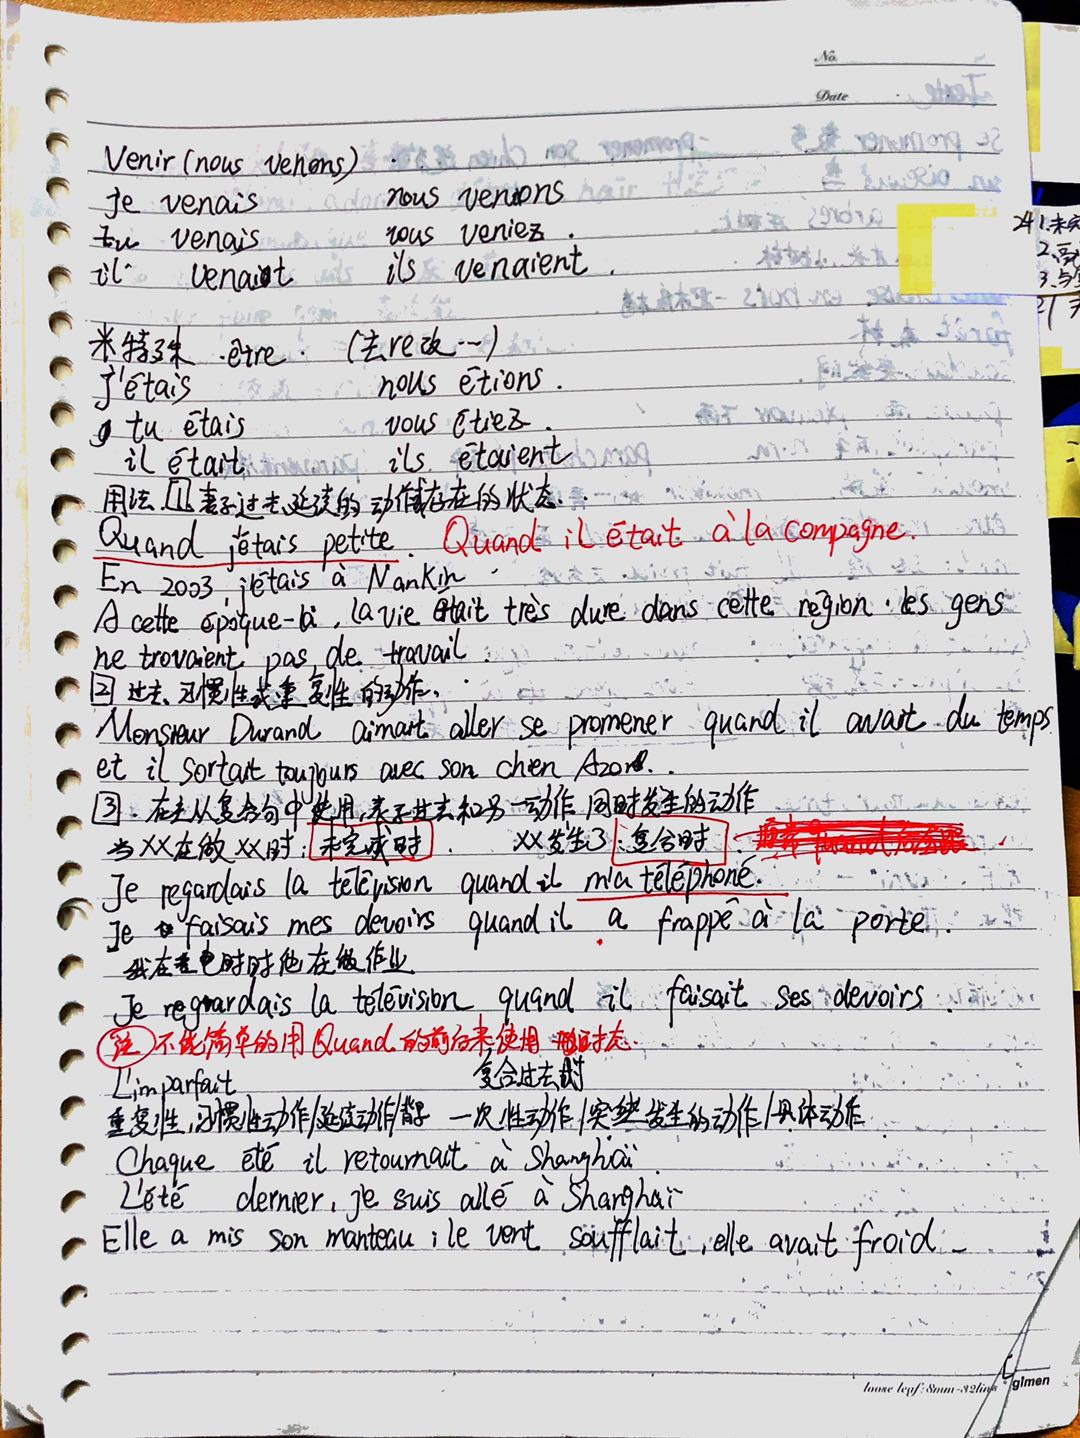 No.
Date
Venir (nous venons)
je venais nous venions
tu venais vous veniez.
il venait ils venaient.
*特殊.être. (去re改…)
j'étais nous étions.
tu étais vous étiez.
il était ils étaient
用法.1 表示过去延续的动作或存在的状态.
Quand j'étais petite. Quand il était à la compagne.
En 2003, j'étais à Nankin
A cette époque-là, la vie était très dure dans cette région. les gens
ne trovaient pas de travail.
2 过去、习惯性或重复性的动作.
Monsieur Durand aimait aller se promener quand il avait du temps
et il sortait toujours avec son chien Azor...
3. 在主从复合句中使用,表示过去和另一动作同时发生的动作
当XX在做XX时: 未完成时. XX发生了: 复合时.
Je regardais la télévision quand il m'a téléphoné.
Je faisais mes devoirs quand il a frappé à la porte.
我在看电时时他在做作业
Je regardais la télévision quand il faisait ses devoirs.
注 不能简单的用Quand的前后来使用时态.
L'imparfait 复合过去时
重复性,习惯性动作/延续动作/背 一次性动作/突然发生的动作/具体动作.
Chaque été il retournait à Shanghaï.
L'été dernier, je suis allé à Shanghaï
Elle a mis son manteau; le vent soufflait, elle avait froid
loose leaf: 8mm-32lines
glmen